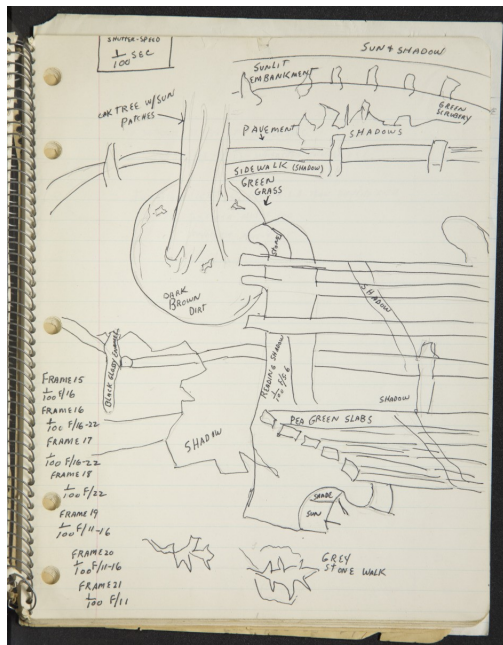 SHUTTER-SPEED
1/100 SEC
SUN & SHADOW
SUNLIT
EMBANKMENT
GREEN
SCRUBERY
OAK TREE W/SUN
PATCHES
PAVEMENT
SHADOWS
SIDEWALK (SHADOW)
GREEN
GRASS
STONE
DARK
BROWN
DIRT
SHADOW
BLACK GLOSSY ENAMEL
READING SHADOW
1/100 F/5.6
SHADOW
PEA GREEN SLABS
SHADOW
SHADE
SUN
FRAME 15
1/100 F/16
FRAME 16
1/100 F/16-22
FRAME 17
1/100 F/16-22
FRAME 18
1/100 F/22
FRAME 19
1/100 F/11-16
FRAME 20
1/100 F/11-16
FRAME 21
1/100 F/11
GREY
STONE WALK